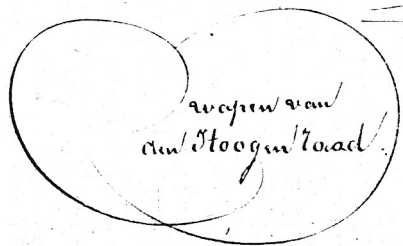 wapen van
den Hoogen Raad.